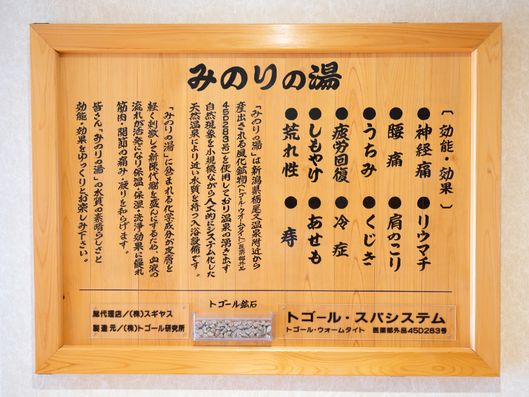 みのりの湯
〔効能・効果〕
●神経痛 ●リウマチ
●腰痛 ●肩のこり
●うちみ ●くじき
●疲労回復 ●冷症
●しもやけ ●あせも
●荒れ性 ●痔
「みのりの湯」は新潟県栃尾又温泉附近から
産出される風化鉱物(トゴール・ウォームタイト)(医薬部外品
45D283号)を使用しており温泉の湧き出す
自然現象を小規模ながら人工的にシステム化した
天然温泉により近い水質を持つ入浴設備です。
「みのりの湯」に含まれる化学成分が皮膚を
軽く刺激して新陳代謝を盛んにするため血液の
流れが活発になり保温・保湿・洗浄効果に優れ
筋肉・関節の痛み・凝りを和らげます。
皆さん「みのりの湯」の水質の素晴らしさと
効能・効果をゆっくりとお楽しみ下さい。
総代理店/(株)スギヤス
製造元/(株)トゴール研究所
トゴール鉱石
トゴール・スパシステム
トゴール・ウォームタイト 医薬部外品45D283号